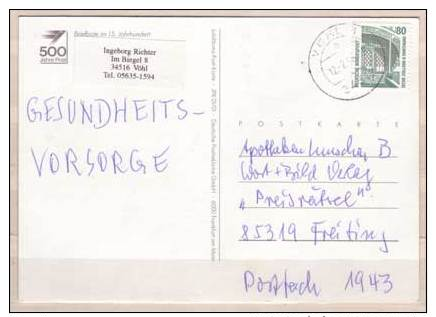 500
Jahre Post
Briefbote im 15. Jahrhundert
Ingeborg Richter
Im Birgel 8
34516 Vöhl
Tel. 05635-1594
GESUNDHEITS-
VORSORGE
Deutsche Postreklame GmbH · 6000 Frankfurt am Main
80
POSTKARTE
Apotheken Umschau B
Wort + Bild Verlag
„Preisrätsel"
85319 Freising
Postfach 1943